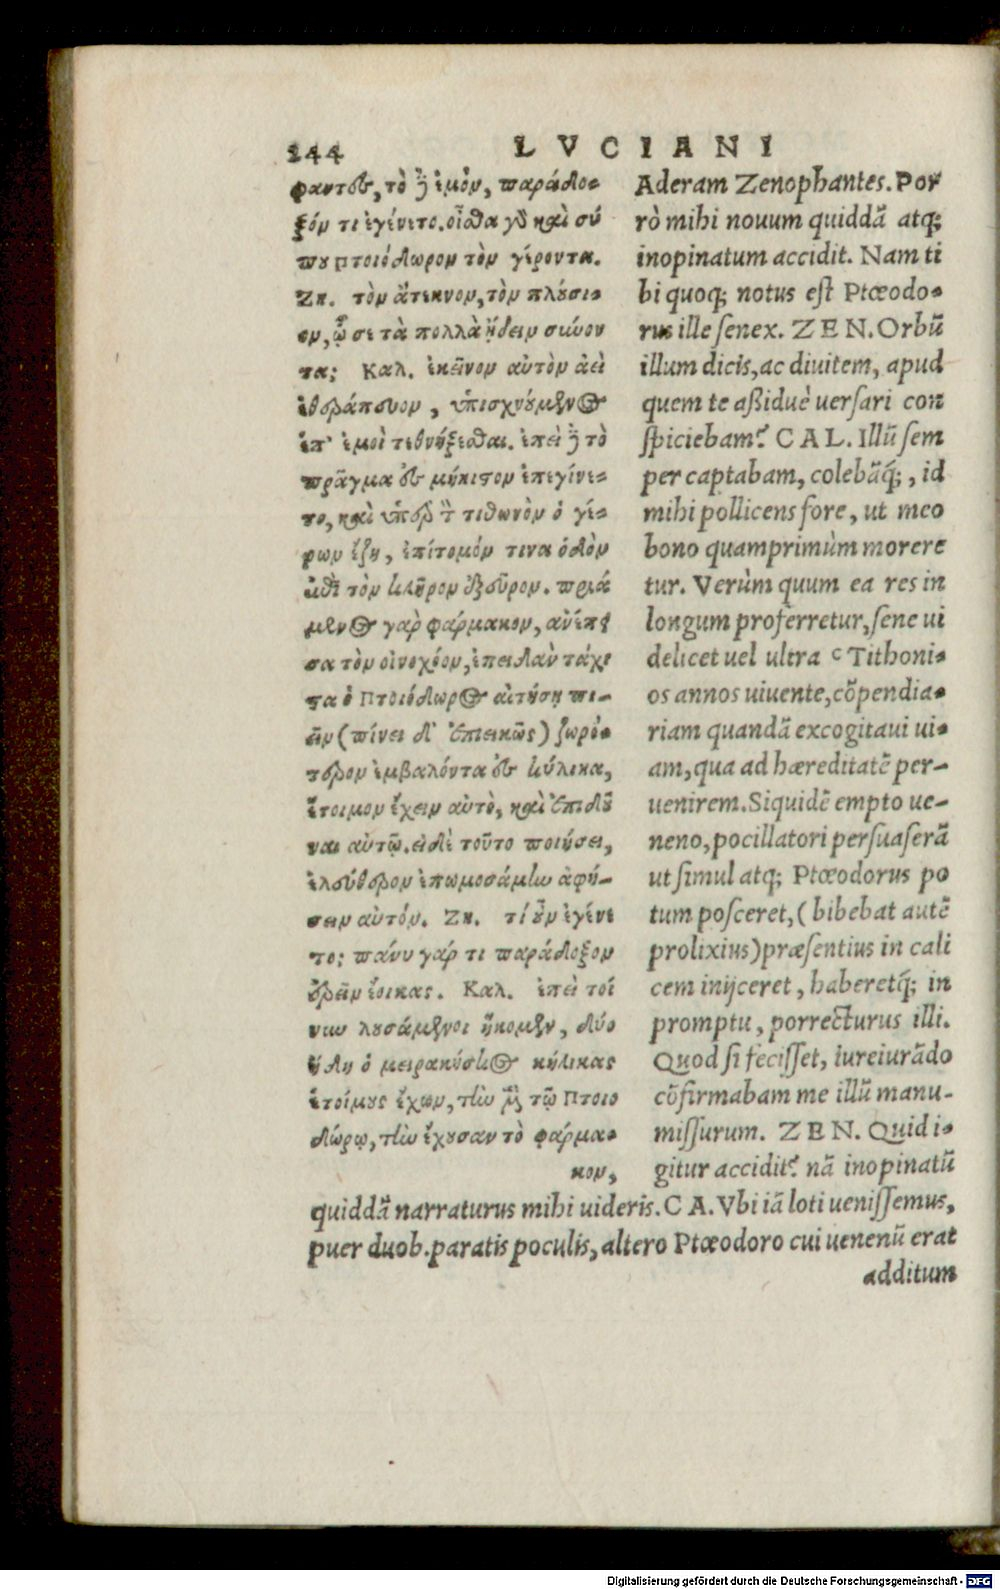 244
LVCIANI
φαντος, τὸ δ᾽ ἐμὸν, παράδο-
ξόν τι ἐγένετο. οἶσθα γὸ καὶ σύ
που Πτοιόδωρον τὸν γέροντα.
Ζη. τὸν ἄτεκνον, τὸν πλύσι-
ον, ᾧ σε τὰ πολλὰ ᾔδειν σιωόν
τα; Καλ. ἐκεῖνον αὐτὸν ἀεὶ
ἐθεράπευον, ὑπισχνούμενος
ἐπ᾽ ἐμοὶ τεθνήξεσθαι. ἐπεὶ δ᾽ τὸ
πρᾶγμα εἰς μήκιστον ἐπεγίνε-
το, καὶ ὑπὲρ τὸν τιθωνὸν ὁ γέ-
ρων ἔζη, ἐπίτομόν τινα ὁδὸν
ἐπὶ τὸν κλῆρον ἐξεῦρον. πριά
μενος γὰρ φάρμακον, ἀνέπει
σα τὸν οἰνοχόον, ἐπειδὰν τάχι
στα ὁ Πτοιόδωρος αἰτήσῃ πι-
εῖν (πίνει δ᾽ ἐπιεικῶς) ζωρό-
τερον ἐμβαλόντα εἰς κύλικα,
ἕτοιμον ἔχειν αὐτὸ, καὶ ἐπιδοῦ
ναι αὐτῷ. εἰ δὲ τοῦτο ποιήσει,
ἐλεύθερον ἐπωμοσάμην ἀφή-
σειν αὐτόν. Ζη. τί οὖν ἐγένε
το; πάνυ γάρ τι παράδοξον
ἐρεῖν ἔοικας. Καλ. ἐπεὶ τοί
νυν λουσάμενοι ἥκομεν, δύο
ἤδη ὁ μειρακίσκος κύλικας
ἑτοίμους ἔχων, τὴν μὲν τῷ Πτοιο
δώρῳ, τὴν ἔχουσαν τὸ φάρμα-
κον,
Aderam Zenophantes. Por
rò mihi nouum quiddã atq;
inopinatum accidit. Nam ti
bi quoq; notus est Ptœodo-
rus ille senex. ZEN. Orbũ
illum dicis, ac diuitem, apud
quem te aßiduè uersari con
spiciebam? CAL. Illũ sem
per captabam, colebãq́;, id
mihi pollicens fore, ut meo
bono quamprimùm morere
tur. Verùm quum ea res in
longum proferretur, sene ui
delicet uel ultra c Tithoni-
os annos uiuente, cõpendia-
riam quandã excogitaui ui-
am, qua ad hæreditatẽ per-
uenirem. Siquidẽ empto ue-
neno, pocillatori persuaserã
ut simul atq; Ptœodorus po
tum posceret, (bibebat autẽ
prolixius) præsentius in cali
cem inijceret, haberetq́; in
promptu, porrecturus illi.
Quod si fecisset, iureiurãdo
cõfirmabam me illũ manu-
missurum. ZEN. Quid i-
gitur accidit? nã inopinatũ
quiddã narraturus mihi uideris. CA. Vbi iã loti uenissemus,
puer duob. paratis poculis, altero Ptœodoro cui uenenũ erat
additum
Digitalisierung gefördert durch die Deutsche Forschungsgemeinschaft - DFG